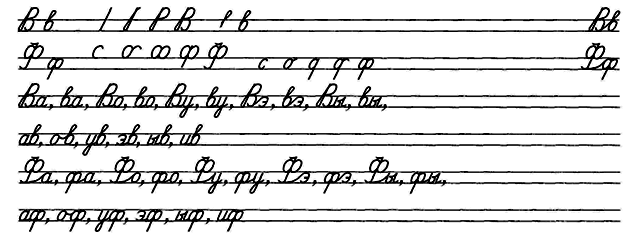 В в В в Вв
Ф ф Ф ф Фф
Ва, ва, Во, во, Ву, ву, Вэ, вэ, Вы, вы,
ав, ов, ув, эв, ыв, ив
Фа, фа, Фо, фо, Фу, фу, Фэ, фэ, Фы, фы,
аф, оф, уф, эф, ыф, иф